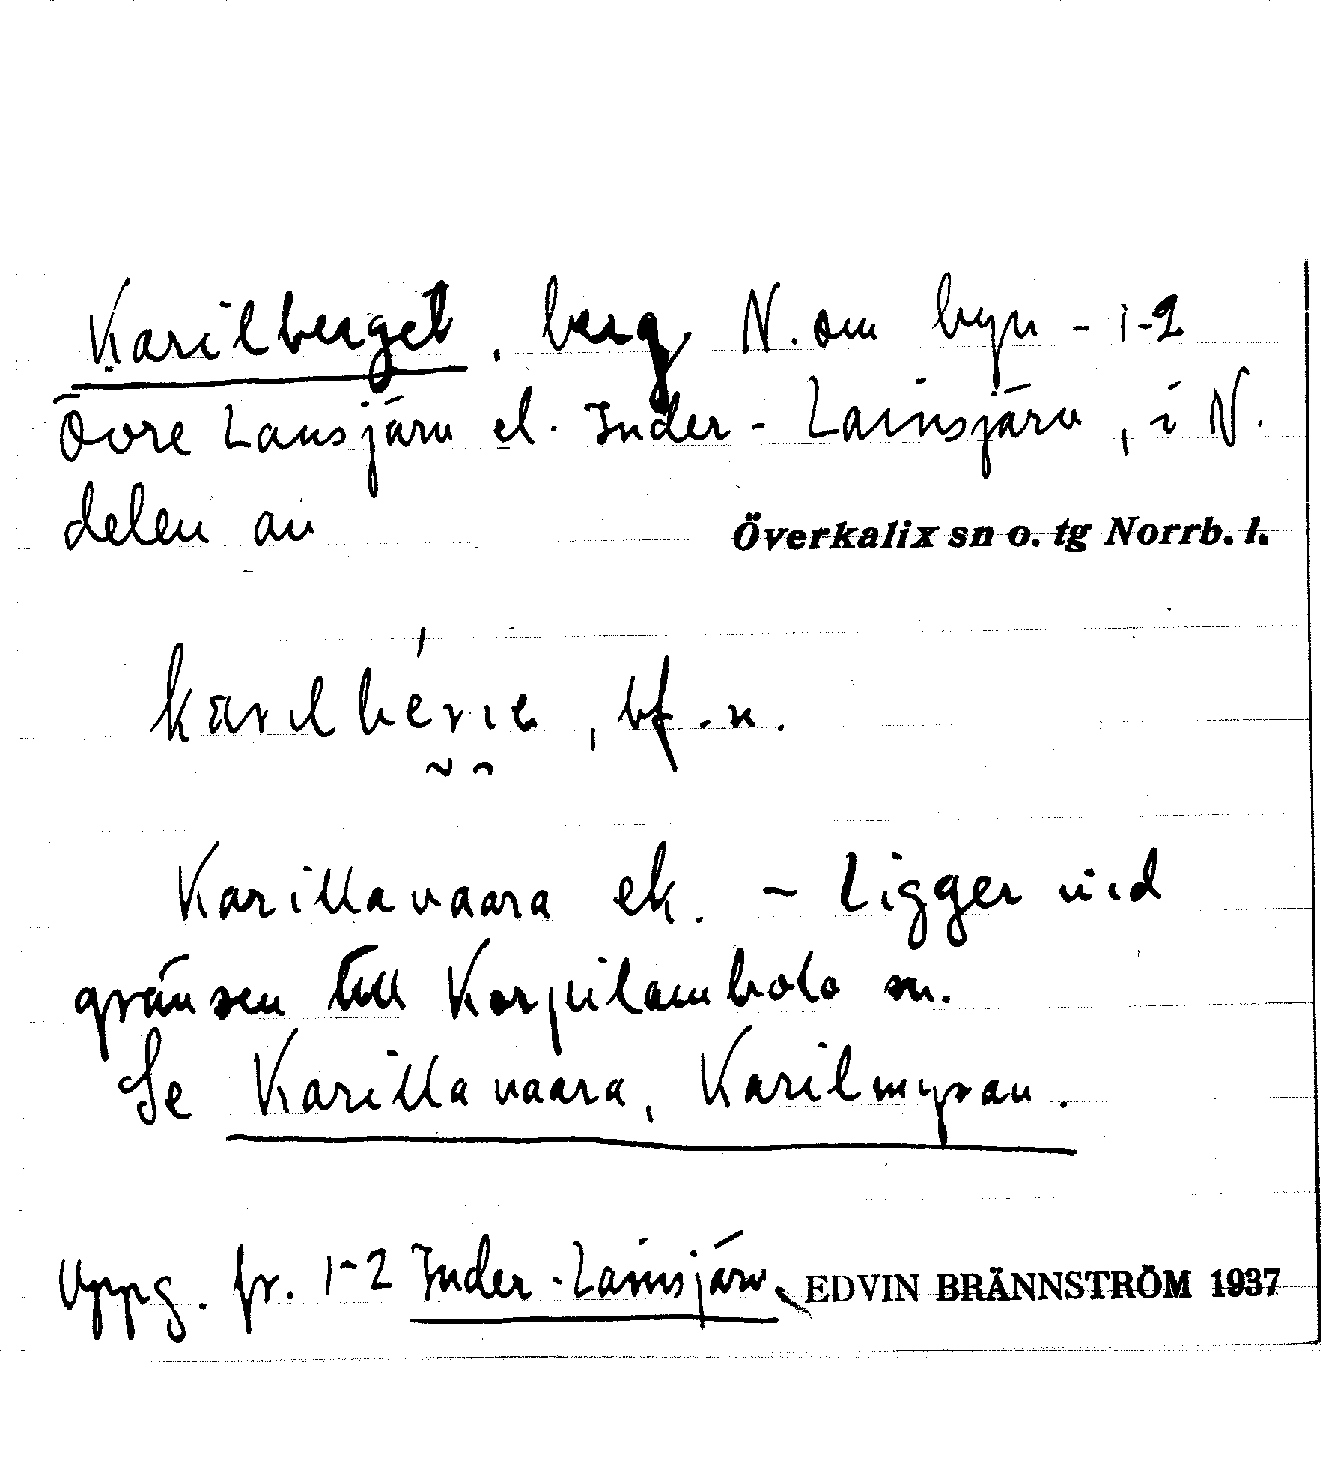 Karilberget, berg N. om byn - 1-2
Övre Lansjärv el. Inder-Lainsjärv, i N.
delen av Överkalix sn o. tg Norrb. l.
bf. n.
Karillavaara ek. - Ligger vid
gränsen till Korpilombolo sn.
Se Karillavaara, Karilmyran.
Uppg. fr. 1-2 Inder-Lainsjärv. EDVIN BRÄNNSTRÖM 1937